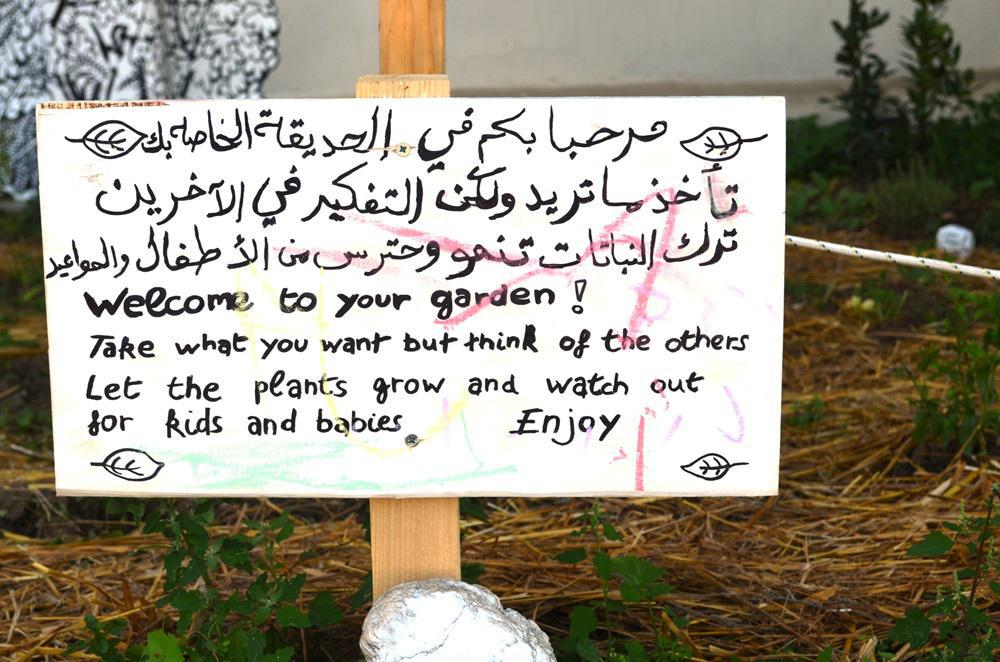 مرحبا بكم في الحديقة الخاصه بك
تأخذ ما تريد ولكن التفكير في الآخرين
ترك النباتات تنمو وحترس من الأطفال والمواعيد
Welcome to your garden !
Take what you want but think of the others
Let the plants grow and watch out
for kids and babies Enjoy